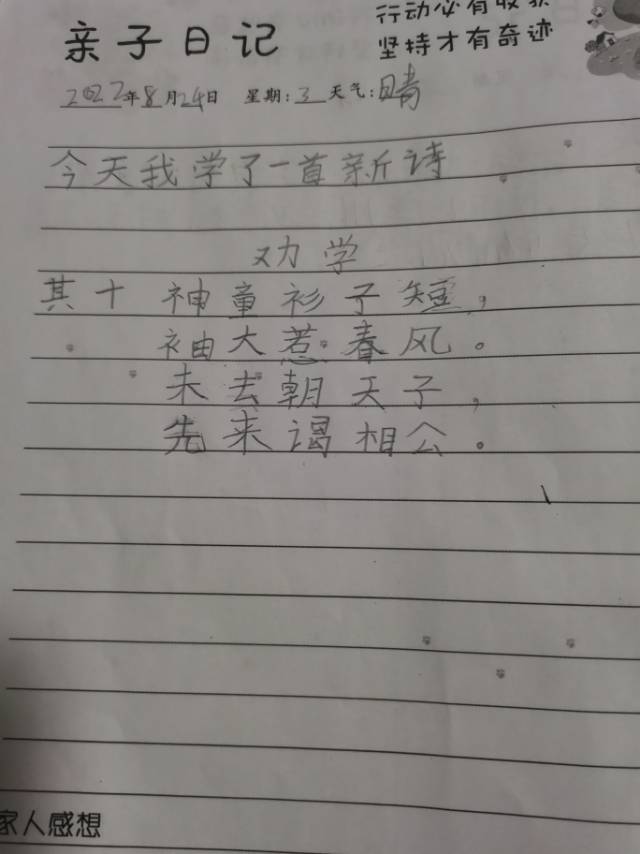 行动必有收获
亲子日记
坚持才有奇迹
2022年8月24日 星期:3 天气:晴
今天我学了一首新诗
劝学
其十 神童衫子短，
袖大惹春风。
未去朝天子，
先来谒相公。
家人感想